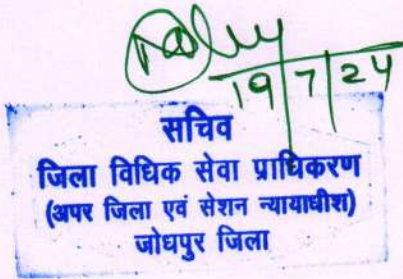 19/7/24
सचिव
जिला विधिक सेवा प्राधिकरण
(अपर जिला एवं सेशन न्यायाधीश)
जोधपुर जिला